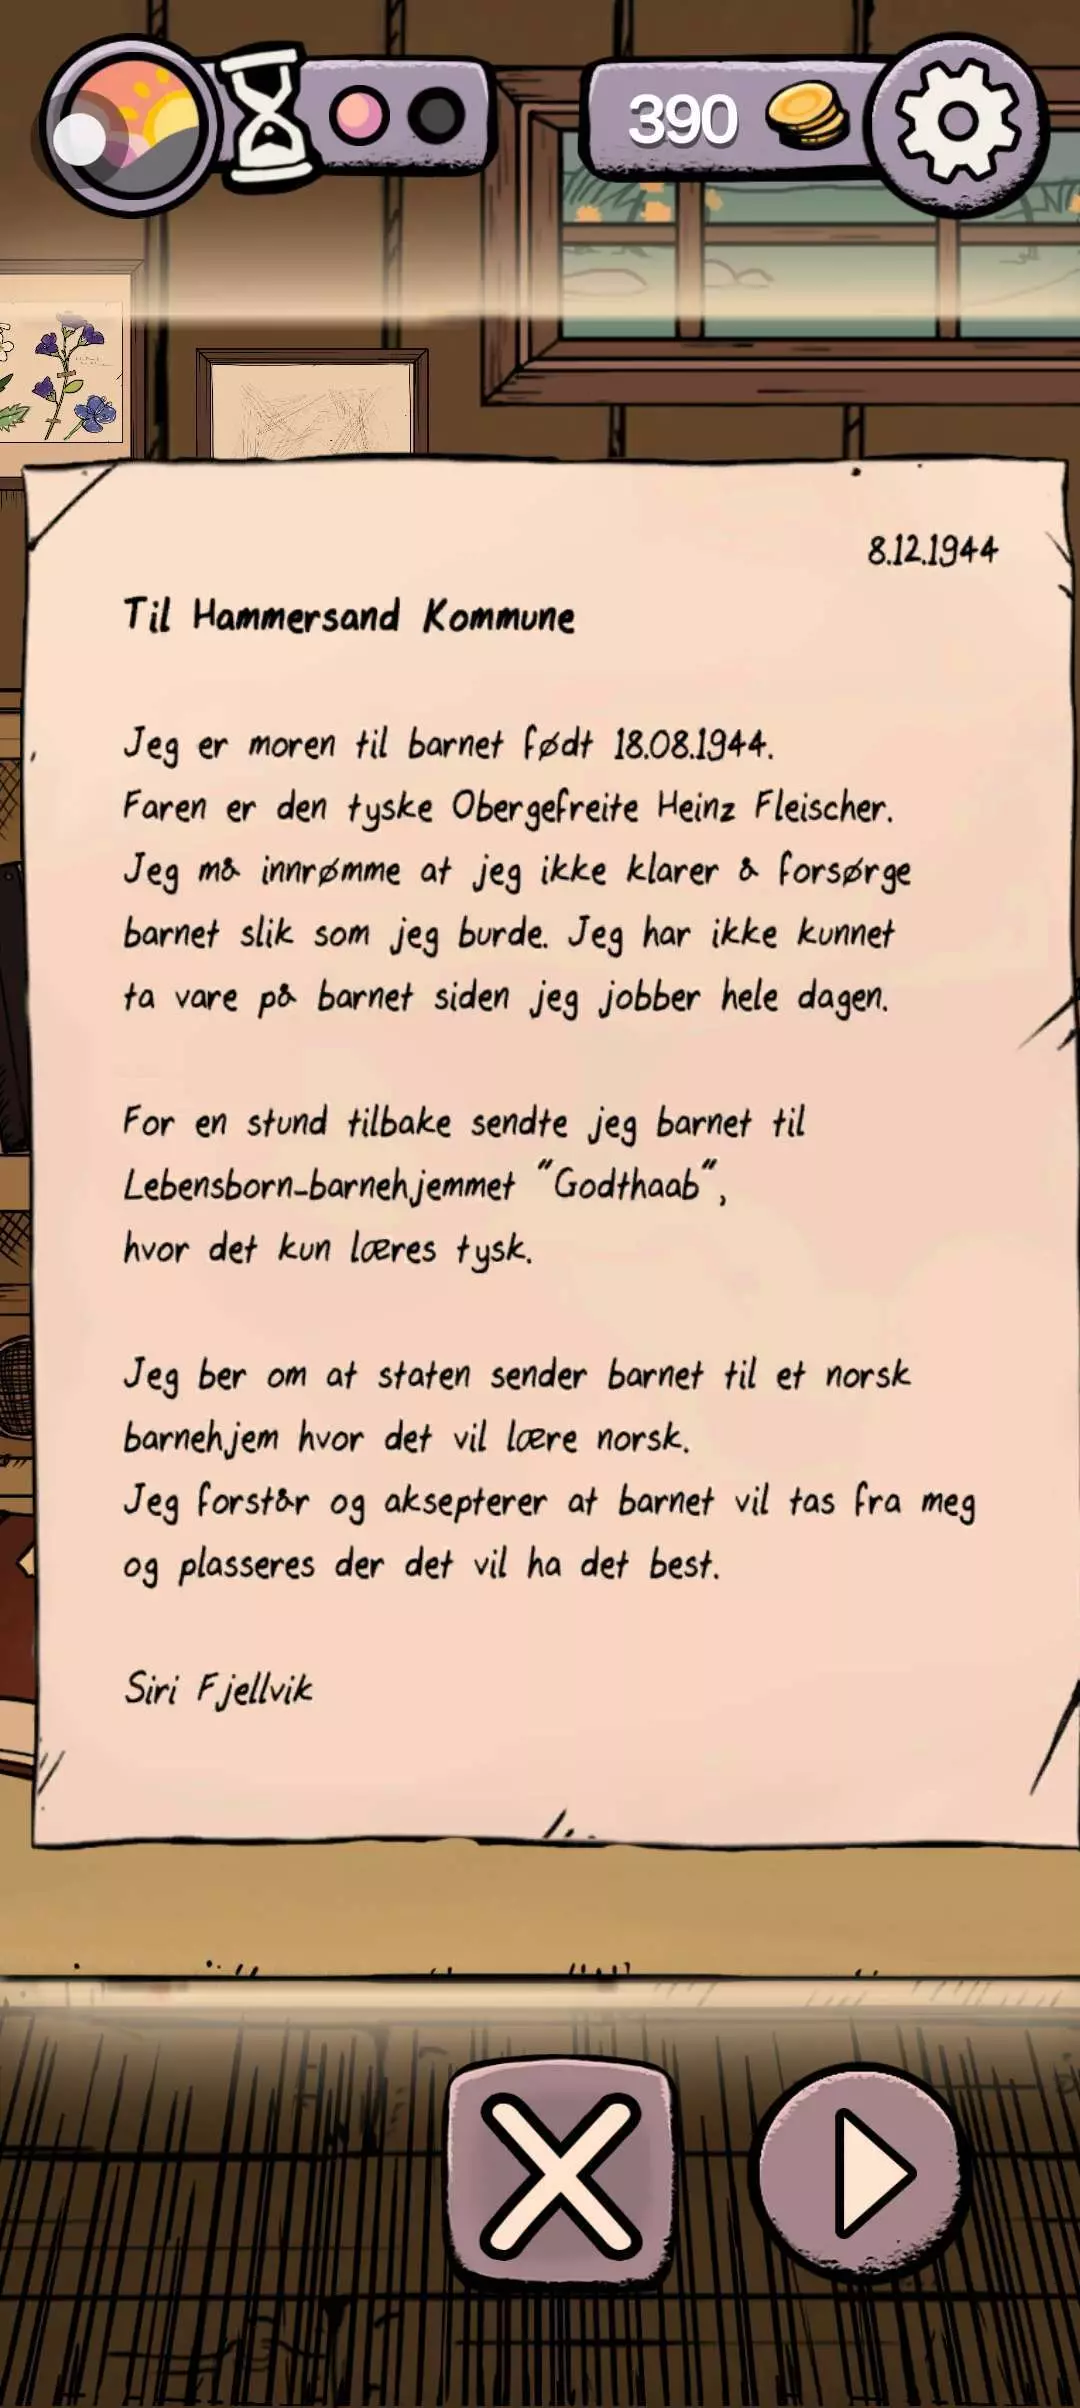 390
8.12.1944
Til Hammersand Kommune
Jeg er moren til barnet født 18.08.1944.
Faren er den tyske Obergefreite Heinz Fleischer.
Jeg må innrømme at jeg ikke klarer å forsørge
barnet slik som jeg burde. Jeg har ikke kunnet
ta vare på barnet siden jeg jobber hele dagen.
For en stund tilbake sendte jeg barnet til
Lebensborn-barnehjemmet "Godthaab",
hvor det kun læres tysk.
Jeg ber om at staten sender barnet til et norsk
barnehjem hvor det vil lære norsk.
Jeg forstår og aksepterer at barnet vil tas fra meg
og plasseres der det vil ha det best.
Siri Fjellvik